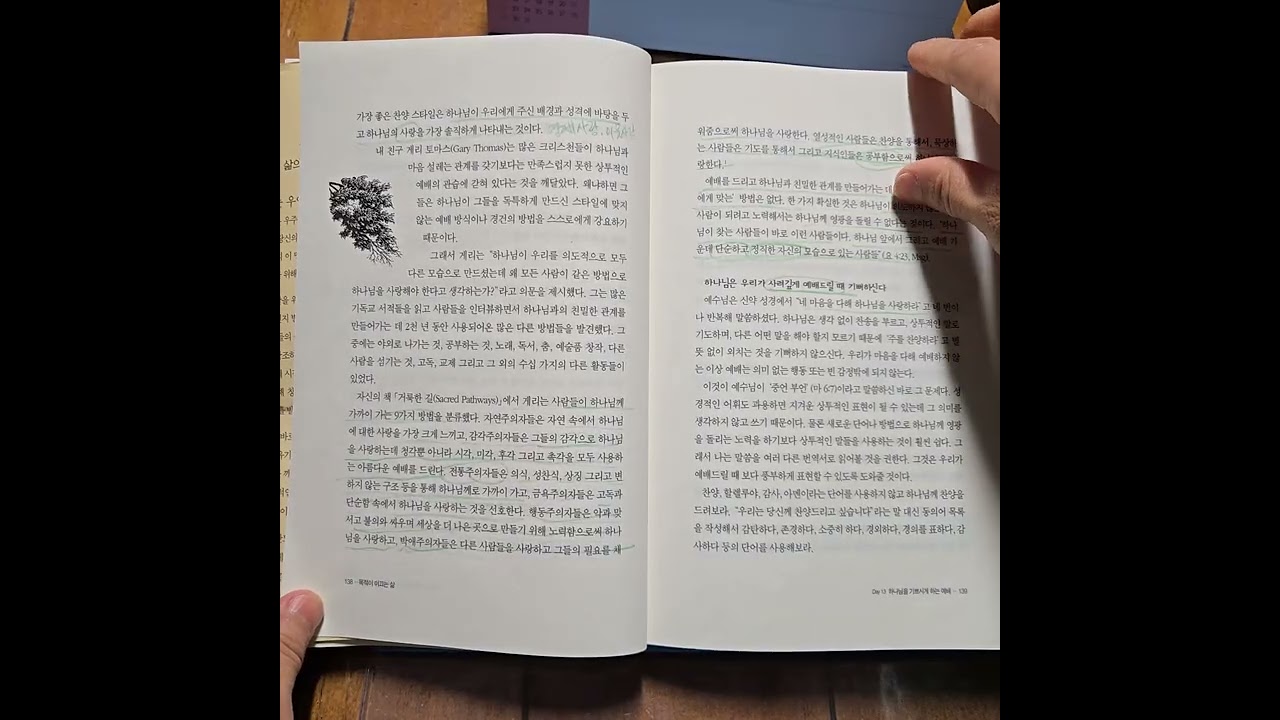 가장 좋은 찬양 스타일은 하나님이 우리에게 주신 배경과 성격에 바탕을 두
고 하나님의 사랑을 가장 솔직하게 나타내는 것이다.
내 친구 게리 토마스(Gary Thomas)는 많은 크리스천들이 하나님과
마음 설레는 관계를 갖기보다는 만족스럽지 못한 상투적인
예배의 관습에 갇혀 있다는 것을 깨달았다. 왜냐하면 그
들은 하나님이 그들을 독특하게 만드신 스타일에 맞지
않는 예배 방식이나 경건의 방법을 스스로에게 강요하기
때문이다.
그래서 게리는 “하나님이 우리를 의도적으로 모두
다른 모습으로 만드셨는데 왜 모든 사람이 같은 방법으로
하나님을 사랑해야 한다고 생각하는가?”라고 의문을 제시했다. 그는 많은
기독교 서적들을 읽고 사람들을 인터뷰하면서 하나님과의 친밀한 관계를
만들어가는 데 2천 년 동안 사용되어온 많은 다른 방법들을 발견했다. 그
중에는 야외로 나가는 것, 공부하는 것, 노래, 독서, 춤, 예술품 창작, 다른
사람을 섬기는 것, 고독, 교제 그리고 그 외의 수십 가지의 다른 활동들이
있었다.
자신의 책 「거룩한 길(Sacred Pathways)」에서 게리는 사람들이 하나님께
가까이 가는 9가지 방법을 분류했다. 자연주의자들은 자연 속에서 하나님
에 대한 사랑을 가장 크게 느끼고, 감각주의자들은 그들의 감각으로 하나님
을 사랑하는데 청각뿐 아니라 시각, 미각, 후각 그리고 촉각을 모두 사용하
는 아름다운 예배를 드린다. 전통주의자들은 의식, 성찬식, 상징 그리고 변
하지 않는 구조 등을 통해 하나님께로 가까이 가고, 금욕주의자들은 고독과
단순함 속에서 하나님을 사랑하는 것을 선호한다. 행동주의자들은 악과 맞
서고 불의와 싸우며 세상을 더 나은 곳으로 만들기 위해 노력함으로써 하나
님을 사랑하고, 박애주의자들은 다른 사람들을 사랑하고 그들의 필요를 채
138 - 목적이 이끄는 삶
워줌으로써 하나님을 사랑한다. 열성적인 사람들은 찬양을 통해서, 묵상하
는 사람들은 기도를 통해서 그리고 지식인들은 공부함으로써
랑한다.
예배를 드리고 하나님과 친밀한 관계를 만들어가는 데
에게 맞는’ 방법은 없다. 한 가지 확실한 것은 하나님이
사람이 되려고 노력해서는 하나님께 영광을 돌릴 수 없다는 것이다. “하나
님이 찾는 사람들이 바로 이런 사람들이다. 하나님 앞에서 그리고 예배 가
운데 단순하고 정직한 자신의 모습으로 있는 사람들”(요 4:23, Msg).
하나님은 우리가 사려깊게 예배드릴 때 기뻐하신다
예수님은 신약 성경에서 “네 마음을 다해 하나님을 사랑하라”고 네 번이
나 반복해 말씀하셨다. 하나님은 생각 없이 찬송을 부르고, 상투적인 말로
기도하며, 다른 어떤 말을 해야 할지 모르기 때문에 ‘주를 찬양하라’고 별
뜻 없이 외치는 것을 기뻐하지 않으신다. 우리가 마음을 다해 예배하지 않
는 이상 예배는 의미 없는 행동 또는 빈 감정밖에 되지 않는다.
이것이 예수님이 ‘중언 부언’(마 6:7)이라고 말씀하신 바로 그 문제다. 성
경적인 어휘도 과용하면 지겨운 상투적인 표현이 될 수 있는데 그 의미를
생각하지 않고 쓰기 때문이다. 물론 새로운 단어나 방법으로 하나님께 영광
을 돌리는 노력을 하기보다 상투적인 말들을 사용하는 것이 훨씬 쉽다. 그
래서 나는 말씀을 여러 다른 번역서로 읽어볼 것을 권한다. 그것은 우리가
예배드릴 때 보다 풍부하게 표현할 수 있도록 도와줄 것이다.
찬양, 할렐루야, 감사, 아멘이라는 단어를 사용하지 않고 하나님께 찬양을
드려보라. “우리는 당신께 찬양드리고 싶습니다”라는 말 대신 동의어 목록
을 작성해서 감탄하다, 존경하다, 소중히 하다, 경외하다, 경의를 표하다, 감
사하다 등의 단어를 사용해보라.
Day 13 하나님을 기쁘시게 하는 예배 - 139